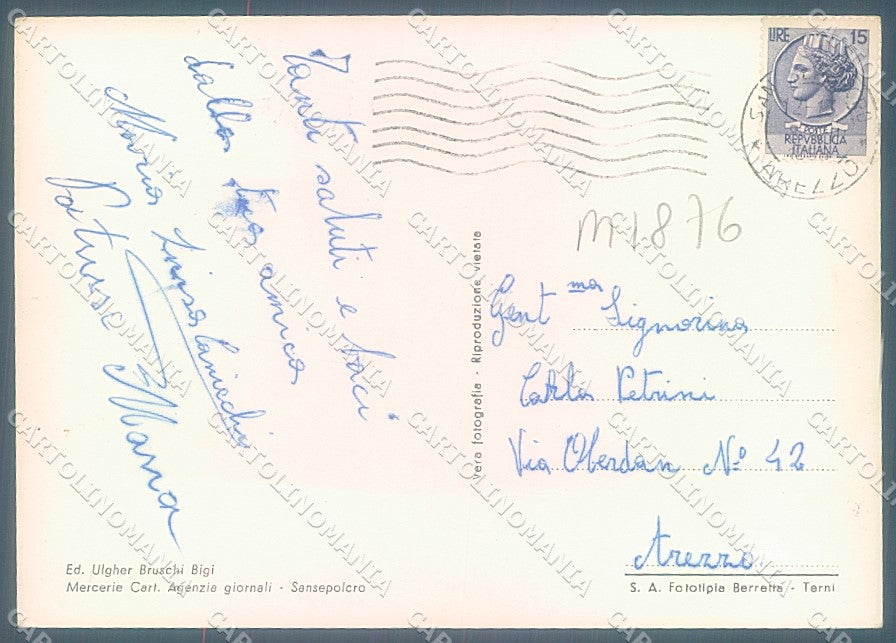 Tanti saluti e baci
dalla tua amica
Maria Luisa
Mamma
LIRE 15
POSTE
REPVBBLICA
ITALIANA
SAN
AREZZO
M1876
Gent ma Signorina
Carla Petrini
Via Oberdan Nº 42
Arezzo
vera fotografia - Riproduzione vietata
Ed. Ulgher Bruschi Bigi
Mercerie Cart. Agenzia giornali - Sansepolcro
S. A. Fototipia Berretta - Terni
CARTOLINOMANIA